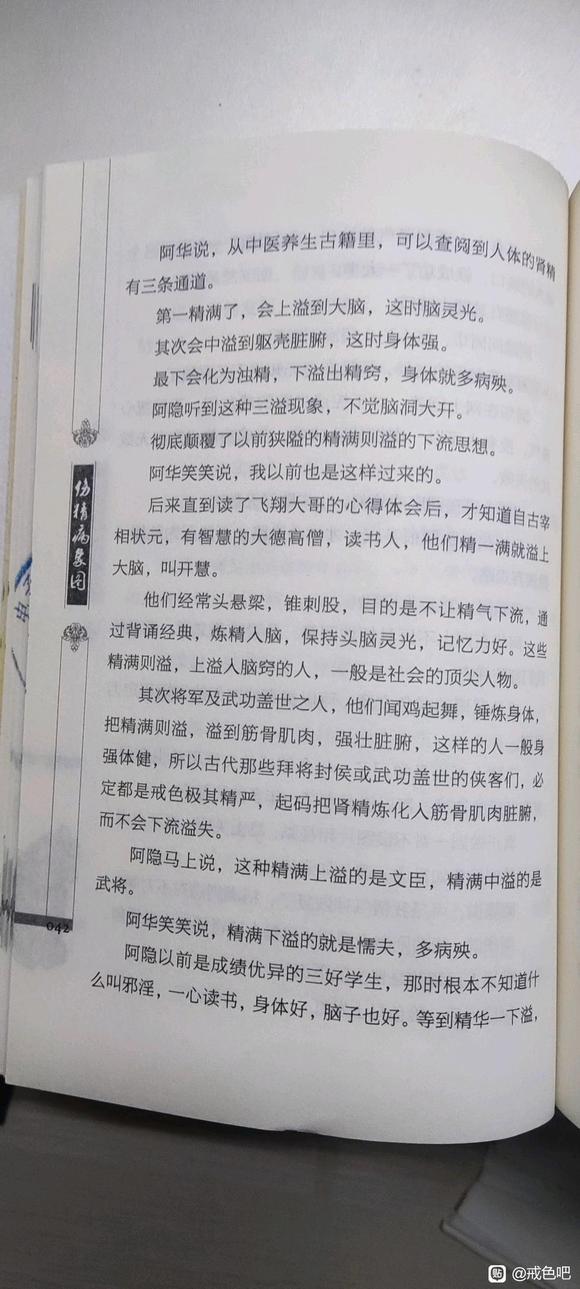 阿华说，从中医养生古籍里，可以查阅到人体的肾精
有三条通道。
第一精满了，会上溢到大脑，这时脑灵光。
其次会中溢到躯壳脏腑，这时身体强。
最下会化为浊精，下溢出精窍，身体就多病殃。
阿隐听到这种三溢现象，不觉脑洞大开。
彻底颠覆了以前狭隘的精满则溢的下流思想。
阿华笑笑说，我以前也是这样过来的。
后来直到读了飞翔大哥的心得体会后，才知道自古宰
相状元，有智慧的大德高僧，读书人，他们精一满就溢上
大脑，叫开慧。
他们经常头悬梁，锥刺股，目的是不让精气下流，通
过背诵经典，炼精入脑，保持头脑灵光，记忆力好。这些
精满则溢，上溢入脑窍的人，一般是社会的顶尖人物。
其次将军及武功盖世之人，他们闻鸡起舞，锤炼身体，
把精满则溢，溢到筋骨肌肉，强壮脏腑，这样的人一般身
强体健，所以古代那些拜将封侯或武功盖世的侠客们，必
定都是戒色极其精严，起码把肾精炼化入筋骨肌肉脏腑，
而不会下流溢失。
阿隐马上说，这种精满上溢的是文臣，精满中溢的是
武将。
阿华笑笑说，精满下溢的就是懦夫，多病殃。
阿隐以前是成绩优异的三好学生，那时根本不知道什
么叫邪淫，一心读书，身体好，脑子也好。等到精华一下溢，
伤精病象图
042
贴 @戒色吧